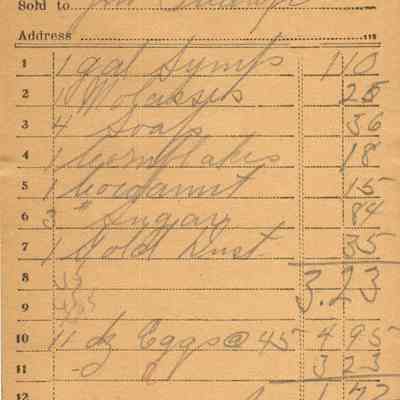 Sold to
Address 115
1 1 gal Syrup 1 10
2 1 Molasses 25
3 4 Soap 36
4 1 Cornflakes 18
5 1 15
6 3 " Sugar 84
7 1 Gold Dust 35
8 3.23
9
10 11 dz Eggs @ 45 4 95
11 3 23
12 1 72